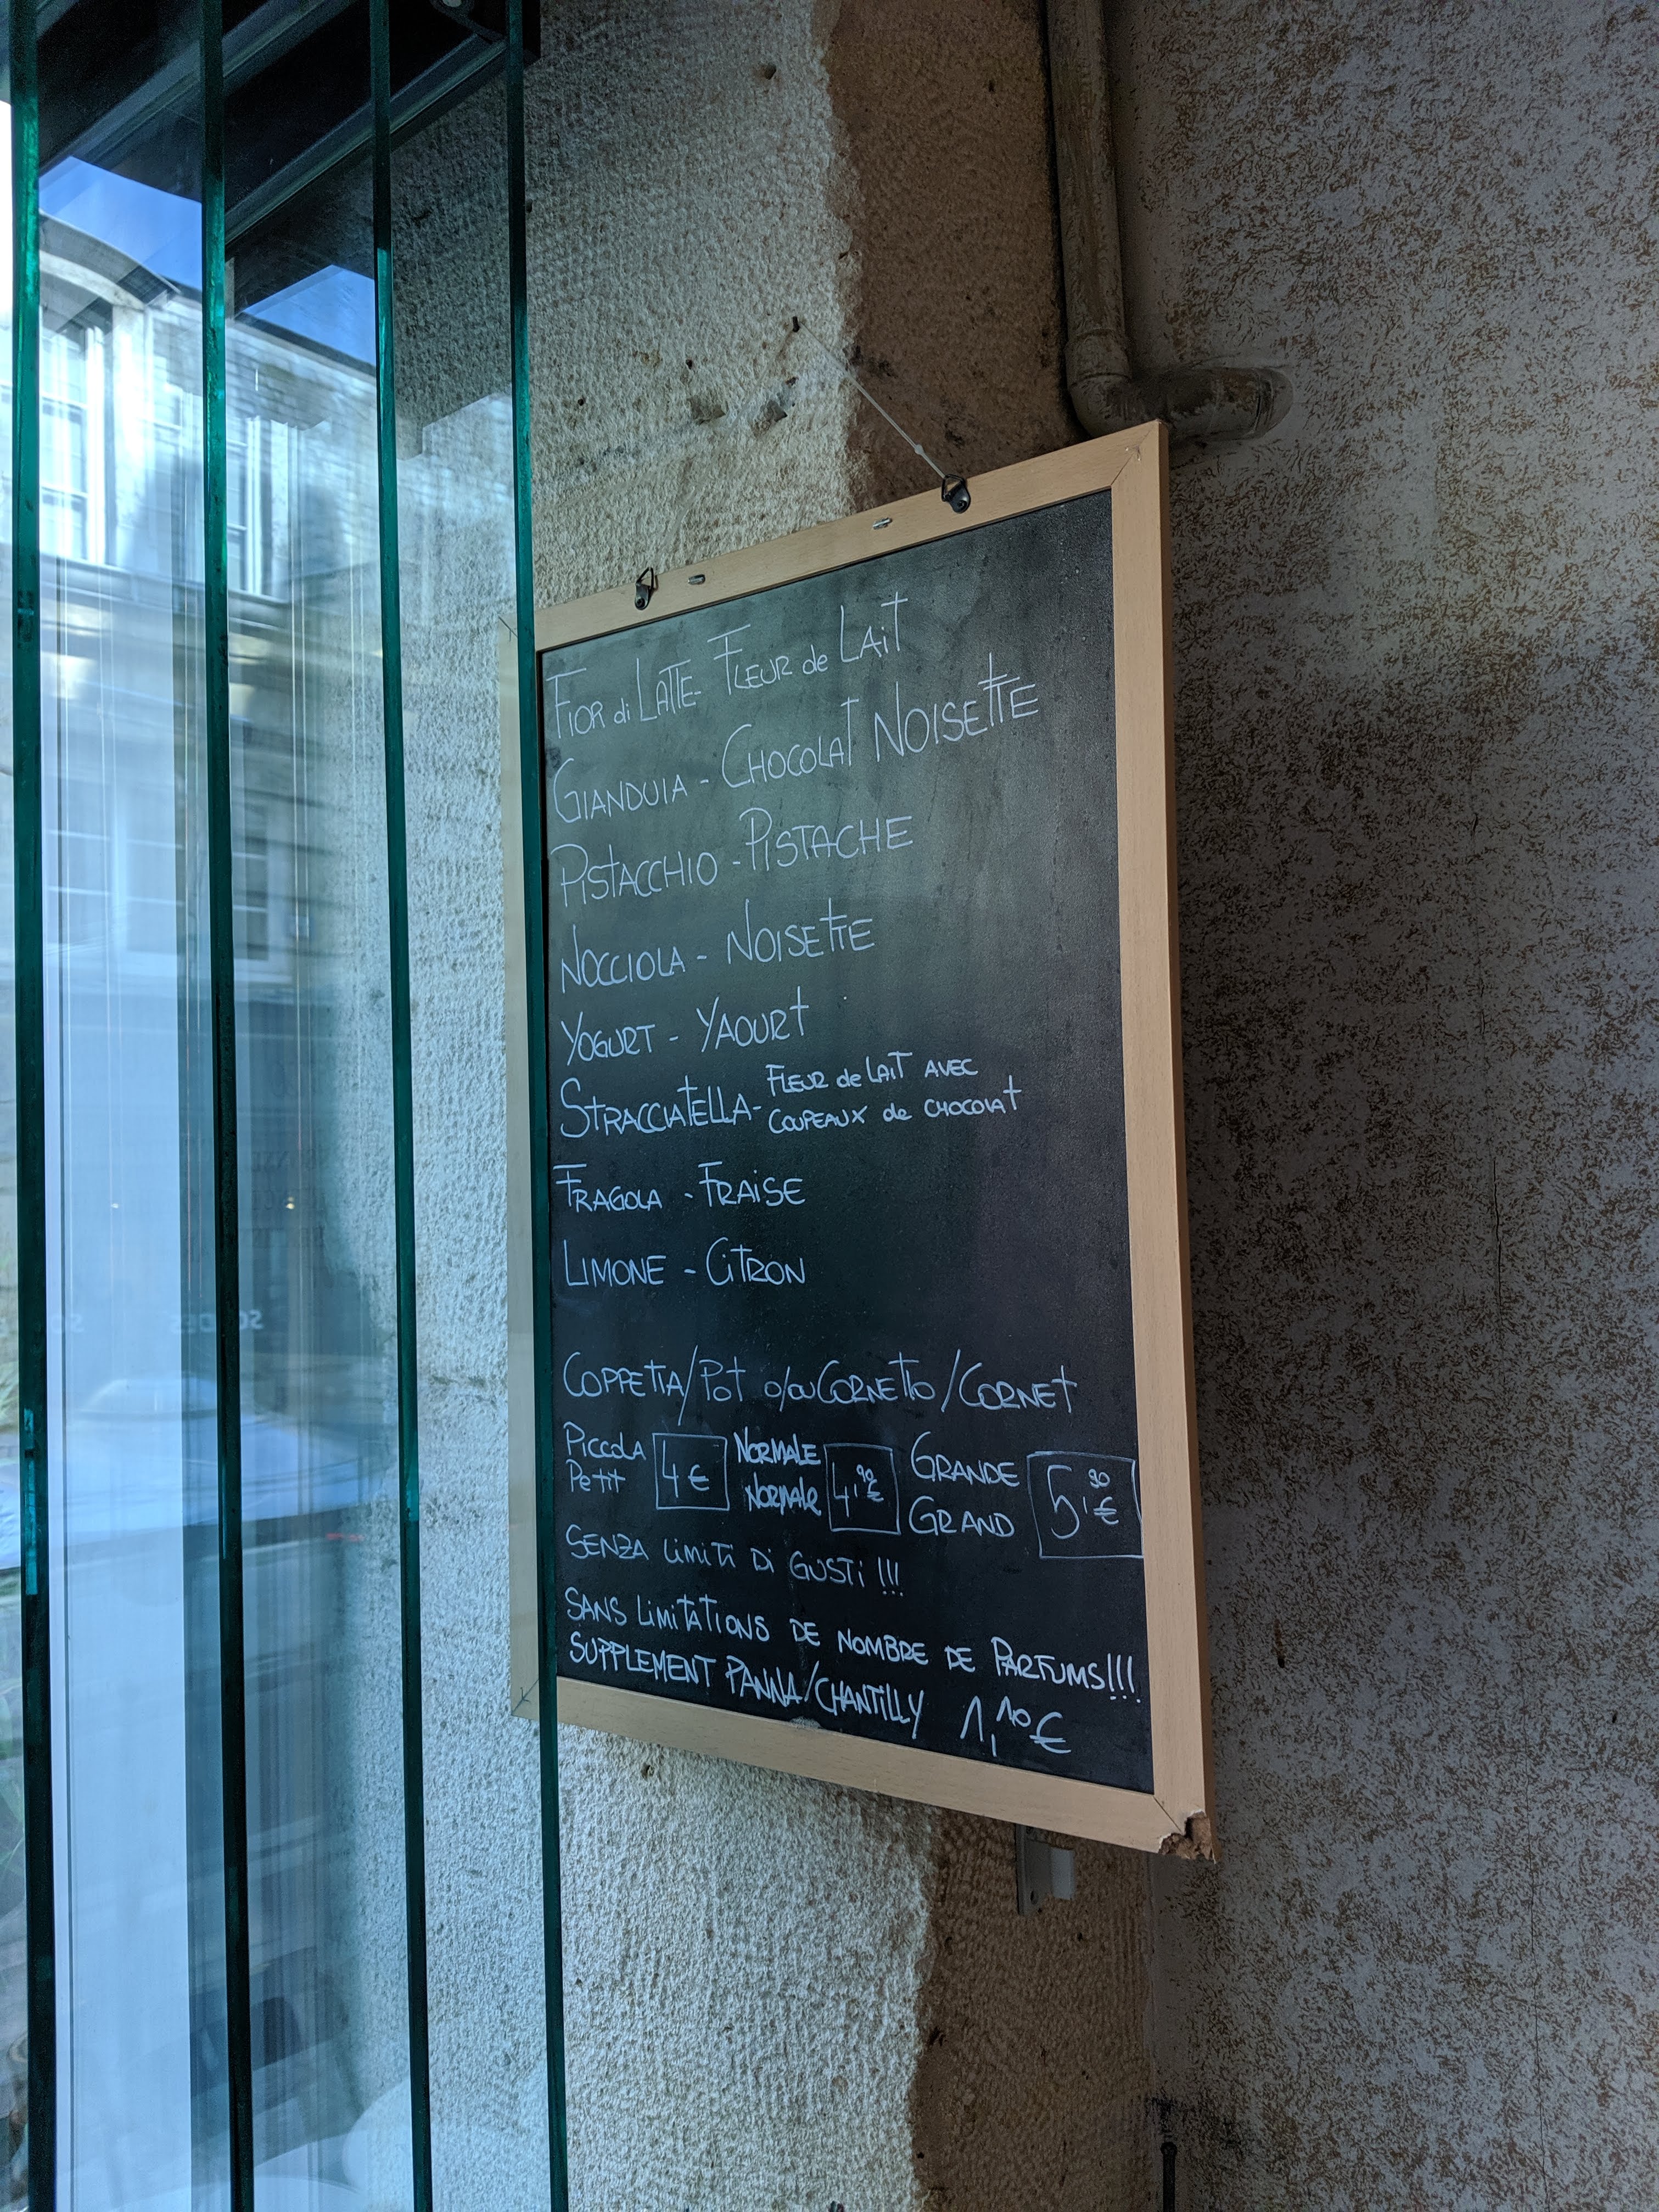 FIOR di LATTE - FLEUR de LAIT
GIANDUIA - CHOCOLAT NOISETTE
PISTACCHIO - PISTACHE
NOCCIOLA - NOISETTE
YOGURT - YAOURT
STRACCIATELLA - FLEUR de LAIT AVEC
COUPEAUX de CHOCOLAT
FRAGOLA - FRAISE
LIMONE - CITRON
COPPETTA/POT o/ou CORNETTO/CORNET
PICCOLA 4€ NORMALE 4,90€ GRANDE 5,90€
PETIT NORMALE GRAND
SENZA LIMITI DI GUSTI !!!
SANS LIMITATIONS DE NOMBRE DE PARFUMS!!!
SUPPLEMENT PANNA/CHANTILLY 1,10€